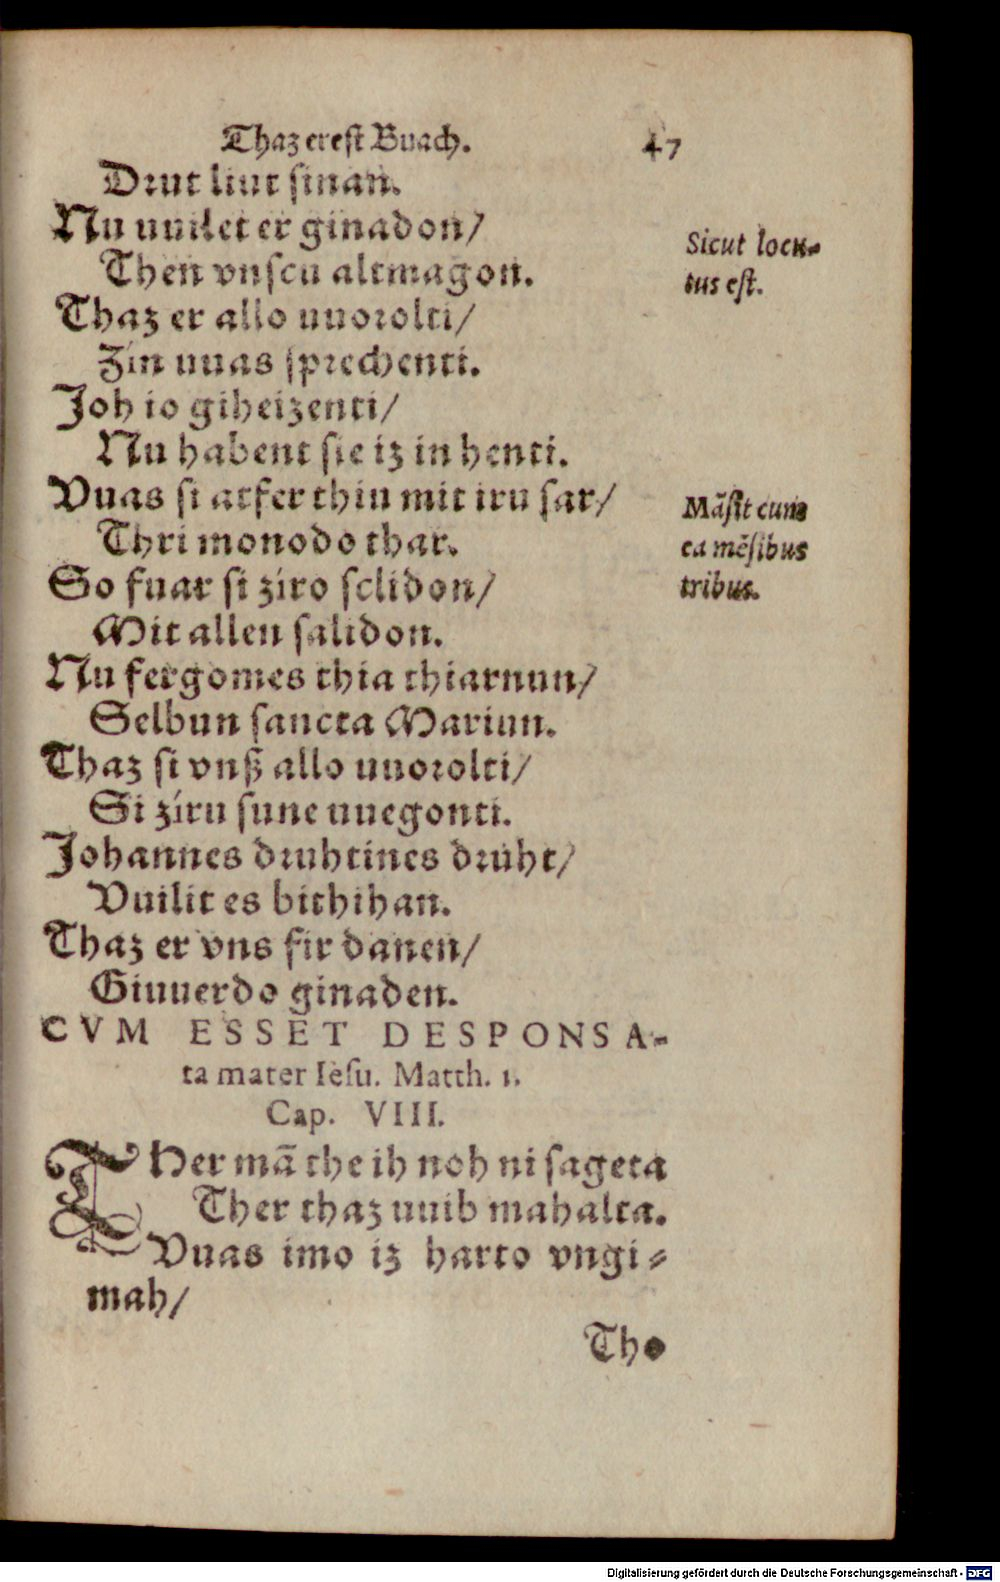 Thaz erest Buach. 47
Drut liut sinan.
Nu uuilet er ginadon/
Then vnseu altmagon.
Sicut locu-
tus est.
Thaz er allo uuorolti/
Zin uuas sprechenti.
Joh io giheizenti/
Nu habent sie iz in henti.
Vuas si atfer thiu mit iru sar/
Thri monodo thar.
Mãsit cum
ea mẽsibus
tribus.
So fuar si ziro selidon/
Mit allen salidon.
Nu fergomes thia thiarnun/
Selbun sancta Mariun.
Thaz si vnß allo uuorolti/
Si zíru sune uuegonti.
Johannes druhtines druht/
Vuilit es bithihan.
Thaz er vns fir danen/
Giuuerdo ginaden.
CVM ESSET DESPONSA-
ta mater Iesu. Matth. 1.
Cap. VIII.
THer mã the ih noh ni sageta
Ther thaz uuib mahalta.
Vuas imo iz harto vngi-
mah/
Tho
Digitalisierung gefördert durch die Deutsche Forschungsgemeinschaft - DFG